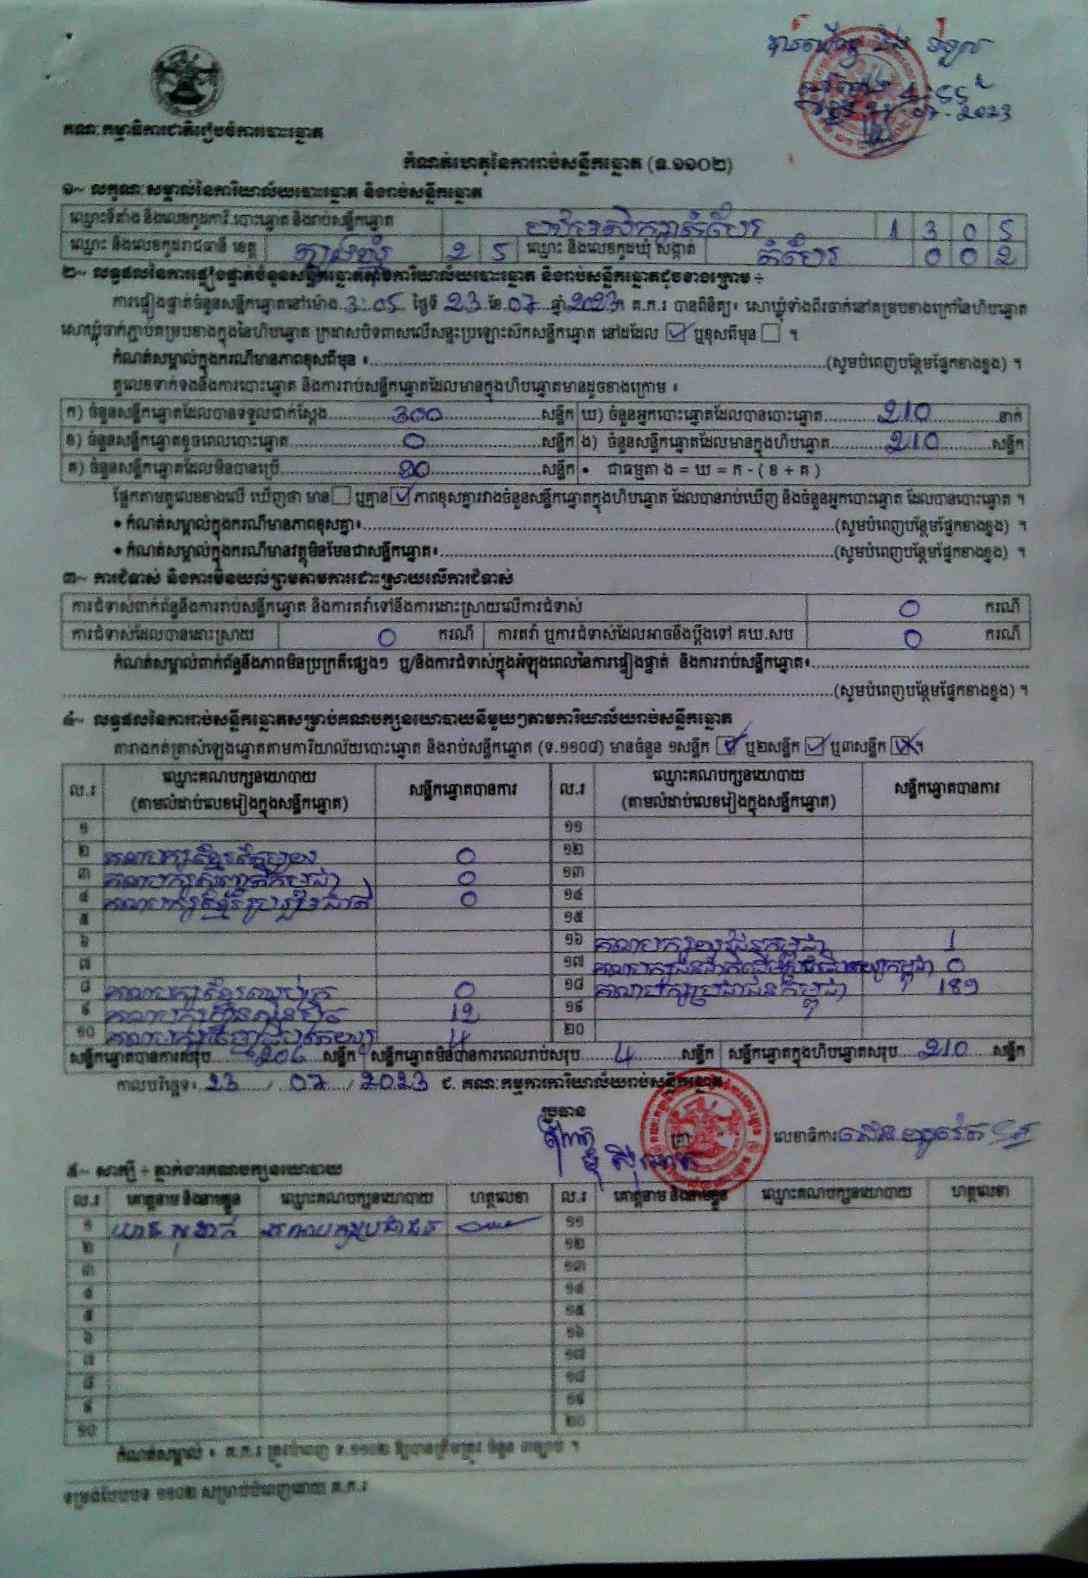 គណៈកម្មាធិការជាតិរៀបចំការបោះឆ្នោត
07-2023
កំណត់ហេតុនៃការរាប់សន្លឹកឆ្នោត (ទ.១១០២)
១~ លក្ខណៈសម្គាល់នៃការិយាល័យបោះឆ្នោត និងរាប់សន្លឹកឆ្នោត
ឈ្មោះទីតាំង និងលេខកូដការិ.បោះឆ្នោត និងរាប់សន្លឹកឆ្នោត 1 3 0 5
ឈ្មោះ និងលេខកូដរាជធានី ខេត្ត ត្បូងឃ្មុំ 2 5 ឈ្មោះ និងលេខកូដឃុំ សង្កាត់ 0 0 2
២~ លទ្ធផលនៃការផ្ទៀងផ្ទាត់ចំនួនសន្លឹកឆ្នោតតាមការិយាល័យបោះឆ្នោត និងរាប់សន្លឹកឆ្នោតដូចខាងក្រោម ÷
ការផ្ទៀងផ្ទាត់ចំនួនសន្លឹកឆ្នោតនៅម៉ោង 3:05 ថ្ងៃទី 23 ខែ 07 ឆ្នាំ 2023 គ.ក.រ បានពិនិត្យ៖ សោឃ្លុំទាំងពីរចាក់នៅគម្របខាងក្រៅនៃហិបឆ្នោត
សោឃ្លុំចាក់ភ្ជាប់គម្របខាងក្នុងនៃហិបឆ្នោត ក្រដាសបិទពាសលើសន្ទះប្រឡោះសឹកសន្លឹកឆ្នោត នៅដដែល ☑ ឬខុសពីមុន ☐ ។
កំណត់សម្គាល់ក្នុងករណីមានភាពខុសពីមុន ៖ (សូមបំពេញបន្ថែមផ្នែកខាងខ្នង) ។
តួលេខទាក់ទងនឹងការបោះឆ្នោត និងការរាប់សន្លឹកឆ្នោតដែលមានក្នុងហិបឆ្នោតមានដូចខាងក្រោម ៖
ក) ចំនួនសន្លឹកឆ្នោតដែលបានទទួលជាក់ស្តែង 300 សន្លឹក ឃ) ចំនួនអ្នកបោះឆ្នោតដែលបានបោះឆ្នោត 210 នាក់
ខ) ចំនួនសន្លឹកឆ្នោតខូចពេលបោះឆ្នោត 0 សន្លឹក ង) ចំនួនសន្លឹកឆ្នោតដែលមានក្នុងហិបឆ្នោត 210 សន្លឹក
គ) ចំនួនសន្លឹកឆ្នោតដែលមិនបានប្រើ 90 សន្លឹក • ជាធម្មតា ង = ឃ = ក - ( ខ + គ )
ផ្អែកតាមតួលេខខាងលើ ឃើញថា មាន ☐ ឬគ្មាន ☑ ភាពខុសគ្នារវាងចំនួនសន្លឹកឆ្នោតក្នុងហិបឆ្នោត ដែលបានរាប់ឃើញ និងចំនួនអ្នកបោះឆ្នោត ដែលបានបោះឆ្នោត ។
• កំណត់សម្គាល់ក្នុងករណីមានភាពខុសគ្នា៖ (សូមបំពេញបន្ថែមផ្នែកខាងខ្នង) ។
• កំណត់សម្គាល់ក្នុងករណីមានវត្ថុមិនមែនជាសន្លឹកឆ្នោត៖ (សូមបំពេញបន្ថែមផ្នែកខាងខ្នង) ។
៣~ ការជំទាស់ និងការមិនយល់ព្រមតាមការដោះស្រាយលើការជំទាស់
ការជំទាស់ពាក់ព័ន្ធនឹងការរាប់សន្លឹកឆ្នោត និងការតវ៉ាទៅនឹងការដោះស្រាយលើការជំទាស់ 0 ករណី
ការជំទាស់ដែលបានដោះស្រាយ 0 ករណី ការតវ៉ា ឬការជំទាស់ដែលអាចនឹងប្តឹងទៅ គឃ.សប 0 ករណី
កំណត់សម្គាល់ពាក់ព័ន្ធនឹងភាពមិនប្រក្រតីផ្សេងៗ ឬ/និងការជំទាស់ក្នុងអំឡុងពេលនៃការផ្ទៀងផ្ទាត់ និងការរាប់សន្លឹកឆ្នោត៖
(សូមបំពេញបន្ថែមផ្នែកខាងខ្នង) ។
៤~ លទ្ធផលនៃការរាប់សន្លឹកឆ្នោតសម្រាប់គណបក្សនយោបាយនីមួយៗតាមការិយាល័យរាប់សន្លឹកឆ្នោត
តារាងកត់ត្រាសំឡេងឆ្នោតតាមការិយាល័យបោះឆ្នោត និងរាប់សន្លឹកឆ្នោត (ទ.១១០៨) មានចំនួន ១សន្លឹក ឬ២សន្លឹក ឬ៣សន្លឹក ។
ល.រ ឈ្មោះគណបក្សនយោបាយ (តាមលំដាប់លេខរៀងក្នុងសន្លឹកឆ្នោត) សន្លឹកឆ្នោតបានការ ល.រ ឈ្មោះគណបក្សនយោបាយ (តាមលំដាប់លេខរៀងក្នុងសន្លឹកឆ្នោត) សន្លឹកឆ្នោតបានការ
១ ១១
២ គណបក្សខ្មែរតែមួយ 0 ១២
៣ 0 ១៣
៤ 0 ១៤
៥ ១៥
៦ ១៦ គណបក្សយុវជនកម្ពុជា 1
៧ ១៧ 0
៨ 0 ១៨ គណបក្សប្រជាជនកម្ពុជា 189
៩ 12 ១៩
១០ 4 ២០
សន្លឹកឆ្នោតបានការសរុប 206 សន្លឹក សន្លឹកឆ្នោតមិនបានការពេលរាប់សរុប 4 សន្លឹក សន្លឹកឆ្នោតក្នុងហិបឆ្នោតសរុប 210 សន្លឹក
កាលបរិច្ឆេទ៖ 23 / 07 / 2023 ជ. គណៈកម្មការការិយាល័យរាប់សន្លឹកឆ្នោត
ប្រធាន
លេខាធិការ
៥~ សាក្សី ÷ ភ្នាក់ងារគណបក្សនយោបាយ
ល.រ គោត្តនាម និងនាមខ្លួន ឈ្មោះគណបក្សនយោបាយ ហត្ថលេខា ល.រ គោត្តនាម និងនាមខ្លួន ឈ្មោះគណបក្សនយោបាយ ហត្ថលេខា
១ គណបក្សប្រជាជន ១១
២ ១២
៣ ១៣
៤ ១៤
៥ ១៥
៦ ១៦
៧ ១៧
៨ ១៨
៩ ១៩
១០ ២០
កំណត់សម្គាល់ ៖ គ.ក.រ ត្រូវបំពេញ ទ.១១០២ ឱ្យបានត្រឹមត្រូវ ចំនួន ច្បាប់ ។
ទម្រង់បែបបទ ១១០២ សម្រាប់បំពេញដោយ គ.ក.រ